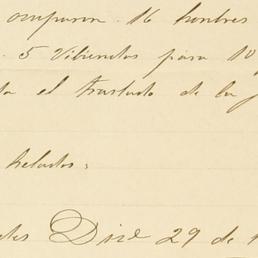 ocuparon. 16 hombres
5 Viviendas para 10
el traslado de la
helados,
Dice 29 de